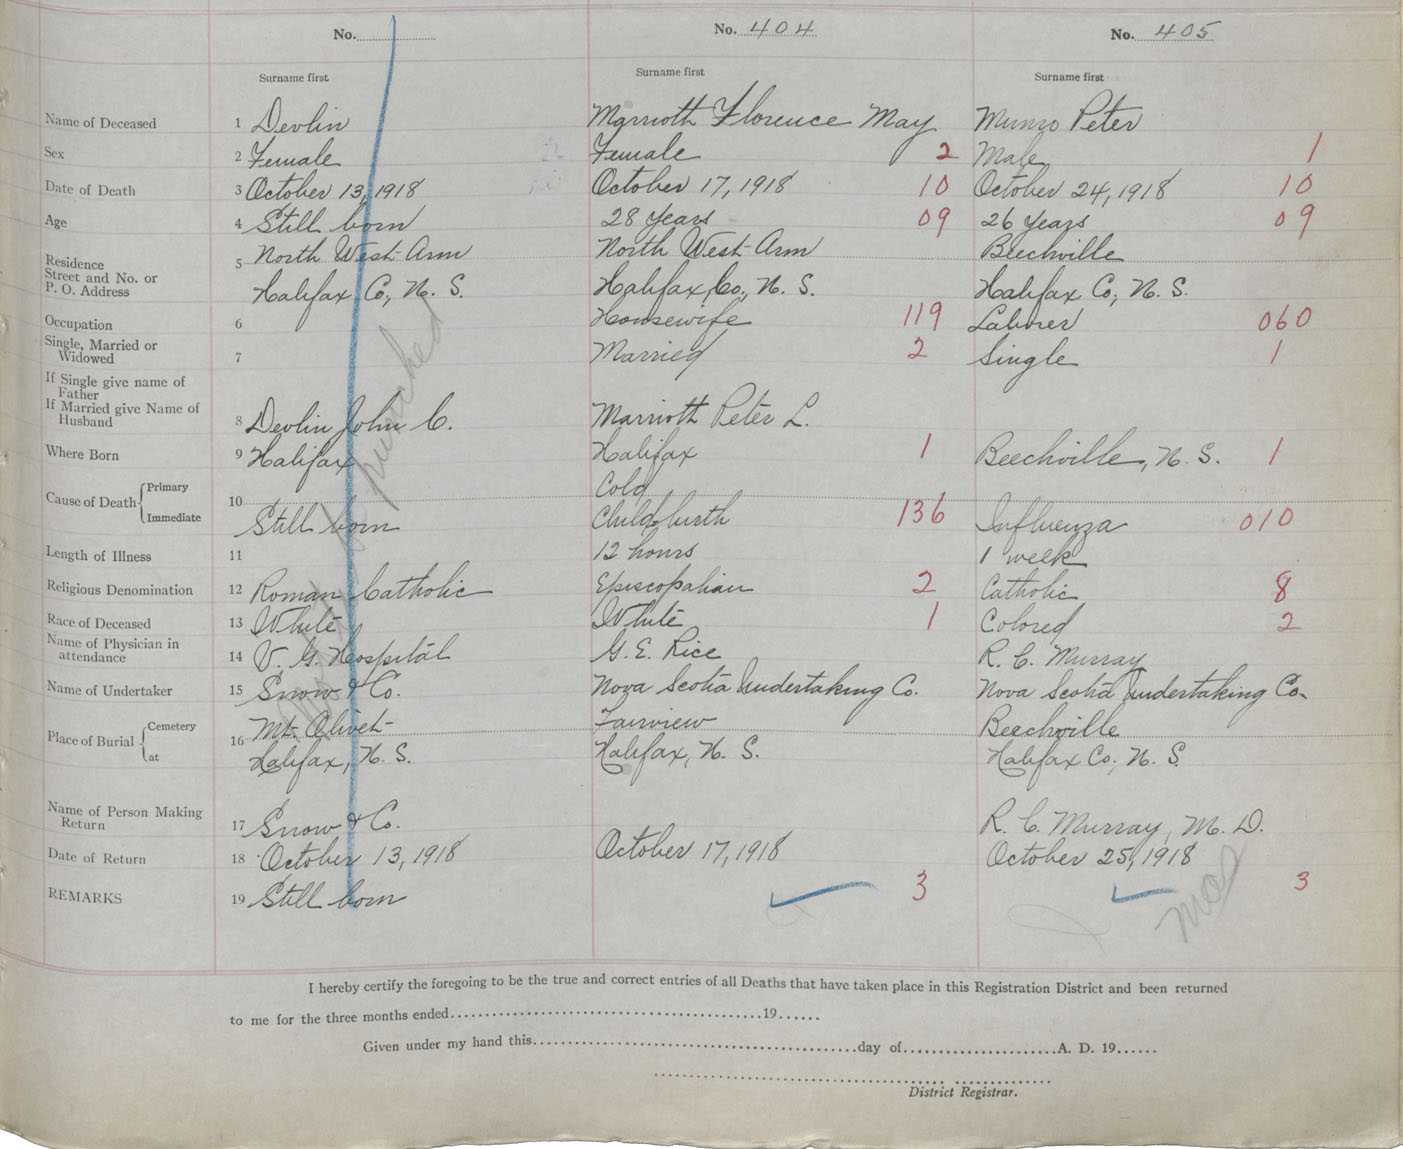 No. ........ No. 404 No. 405
Surname first Surname first Surname first
Name of Deceased 1 Devlin Marrioth Florence May Munro Peter
Sex 2 Female Female 2 Male 1
Date of Death 3 October 13, 1918 October 17, 1918 10 October 24, 1918 10
Age 4 Still born 28 Years 09 26 Years 09
Residence
Street and No. or
P. O. Address
5 North West Arm North West Arm Beechville
Halifax Co, N. S. Halifax, Co., N. S. Halifax Co, N. S.
Occupation 6 Housewife 119 Laborer 060
Single, Married or
Widowed
7 Married 2 Single 1
If Single give name of
Father
If Married give Name of
Husband
8 Devlin John C. Marrioth Peter L.
Where Born 9 Halifax Halifax 1 Beechville, N. S. 1
Cause of Death Primary 10 Cold
Immediate Still born Childbirth 136 Influenza 010
Length of Illness 11 12 hours 1 week
Religious Denomination 12 Roman Catholic Episcopalian 2 Catholic 8
Race of Deceased 13 White White 1 Colored 2
Name of Physician in
attendance
14 V. G. Hospital G. E. Rice R. C. Murray
Name of Undertaker 15 Snow & Co. Nova Scotia Undertaking Co. Nova Scotia Undertaking Co.
Place of Burial Cemetery 16 Mt. Olivet Fairview Beechville
at Halifax, N. S. Halifax, N. S. Halifax Co, N. S.
Name of Person Making
Return
17 Snow & Co. R. C. Murray, M. D.
Date of Return 18 October 13, 1918 October 17, 1918 October 25, 1918
REMARKS 19 Still born 3 3
punched
I hereby certify the foregoing to be the true and correct entries of all Deaths that have taken place in this Registration District and been returned
to me for the three months ended........................................19......
Given under my hand this........................................day of....................A. D. 19......
District Registrar.